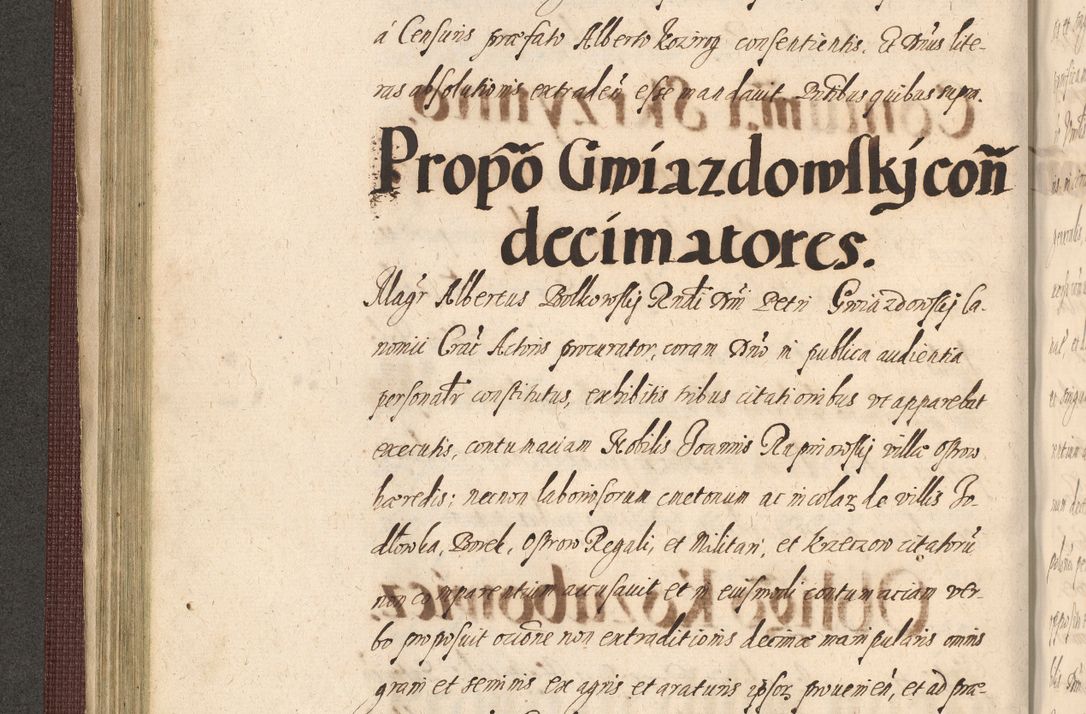 á Censuris præfato Alberto Kozirog consentientis. Et Dnus lite-
ras absolutionis extraden̄ esse mandavit Pntibus quibus supra.
Propo͠ Gwiazdowskÿ con͠
decimatores.
Magr Albertus Bolkowskÿ Rndi Dni Petri Gwiazdowskÿ Ca-
nonici Crac Actoris procurator, coram Dno in publica audientia
personalr constitutus, exhibitis tribus citationibus ut apparebat
executis, contumaciam Nobilis Joannis Rupniowskÿ villæ Ostrow
hæredis; necnon laboriosorum cmetonum ac incolaꝝ de villis Jo-
dłowka, Borek, Ostrow Regali, et Militari, et Krzeczow citatorū
non comparentium accusavit et in eiusmodi contumaciam ver-
bo proposuit oc͠cione non extraditionis decimæ manipularis omnis
grani et seminis ex agris et araturis ipsoꝝ provenien̄, et ad præ-